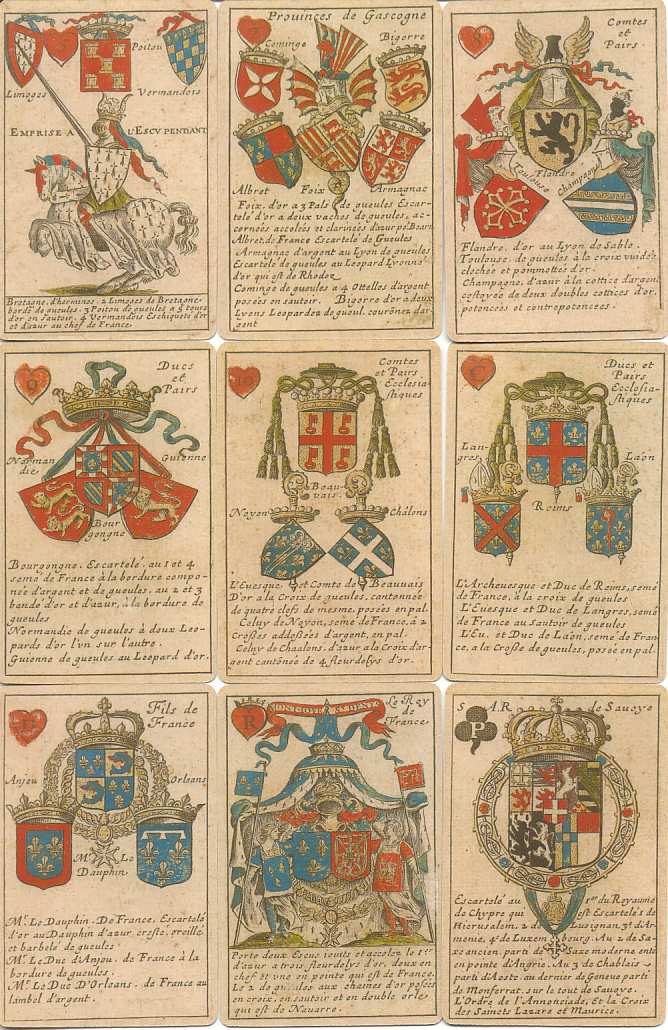 5
Limoges
Poitou
Vermandois
EMPRISE A
L'ESCU PENDANT
Bretagne, d'hermines. 2 Limoges de Bretagne
bordé de gueules. 3 Poitou de gueules a 5 tours
d'or en sautoir. 4 Vermandois Eschiqueté d'or
et d'azur au chef de France
7
Provinces de Gascogne
Cominge
Bigorre
Albret
Foix
Armagnac
Foix. d'or a 3 Pals de gueules Escar-
telé d'or a deux vaches de gueules, ac-
cornées accolées et clarinées d'azur
Albret, de France Escartelé de Gueules
Armagnac d'argent au Lyon de gueules
Escartelé de gueules au Leopard Lyonné
d'or qui est de Rhodez
Cominge de gueules a 4 Ottelles d'argent
posées en sautoir. Bigorre d'or a deux
Lyons Leopardez de gueul. courónez d'ar-
gent
Comtes
et
Pairs.
Toulouse
Flandre
Champagne
Flandre, d'or au Lyon de Sable.
Toulouse, de gueules à la croix vuidée
clechée et pommettée d'or.
Champagne, d'azur à la cottice d'argent
costoyée de deux doubles cottices d'or,
potencées et contrepotencées.
9
Ducs
et
Pairs
Norman
die
Guienne
Bour
gongne
Bourgongne. Escartelé, au 1 et 4
semé de France à la bordure compo-
née d'argent et de gueules, au 2 et 3
bandé d'or et d'azur, à la bordure de
gueules
Normandie de gueules à deux Leo-
pards d'or l'un sur l'autre.
Guienne de gueules au Leopard d'or.
10
Comtes
et Pairs
Ecclesia-
stiques
Beau-
vais
Noyon
Châlons
L'Evesque et Comte de Beauvais
D'or a la Croix de gueules, cantonnée
de quatre clefs de mesme, posées en pal.
Celuy de Noyon, semé de France, à 2
Croßes addoßées d'argent, en pal.
Celuy de Chaalons, d'azur a la Croix d'ar-
gent cantónée de 4 fleurdelys d'or.
C
Ducs et
Pairs
Ecclesia-
stiques
Lan-
gres
Laon
Reims
L'Archevesque et Duc de Reims, semé
de France, à la croix de gueules
L'Evesque et Duc de Langres, semé
de France au sautoir de gueules
L'Ev. et Duc de Láon, semé de Fran-
ce, a la Croße de gueules, posée en pal.
Fils de
France
Anjou
Orleans
Mr. Le
Dauphin
Mr. Le Dauphin. De France, Escartelé
d'or au Dauphin d'azur, cresté, oreillé
et barbelé de gueules
Mr. Le Duc d'Anjou. de France à la
bordure de gueules.
Mr. Le Duc D'Orleans. de France au
lambel d'argent.
R
MONTIOYE St DENIS
Le Roy
de
France
Porte deux Escus ioints et accolez le 1er
d'azur a trois fleurdelys d'or, deux en
chef et une en pointe qui est de France.
Le 2 de gueules aux chaines d'or posées
en croix, en sautoir et en double orle
qui est de Navarre.
S A.R. de Savoye
P
Escartelé au 1er du Royaume
de Chypre qui est Escartelé de
Hierusalem, 2 de Lusignan, 3 d'Ar-
menie, 4 de Luxembourg. Au 2 de Sa-
xe ancien, parti de Saxe moderne enté
en pointe d'Angrie. Au 3 de Chablais
parti d'Aoste. au dernier de Geneve parti
de Monferrat. sur le tout de Savoye.
L'Ordre de l'Annonciade, Et la Croix
des Saincts Lazare et Maurice.